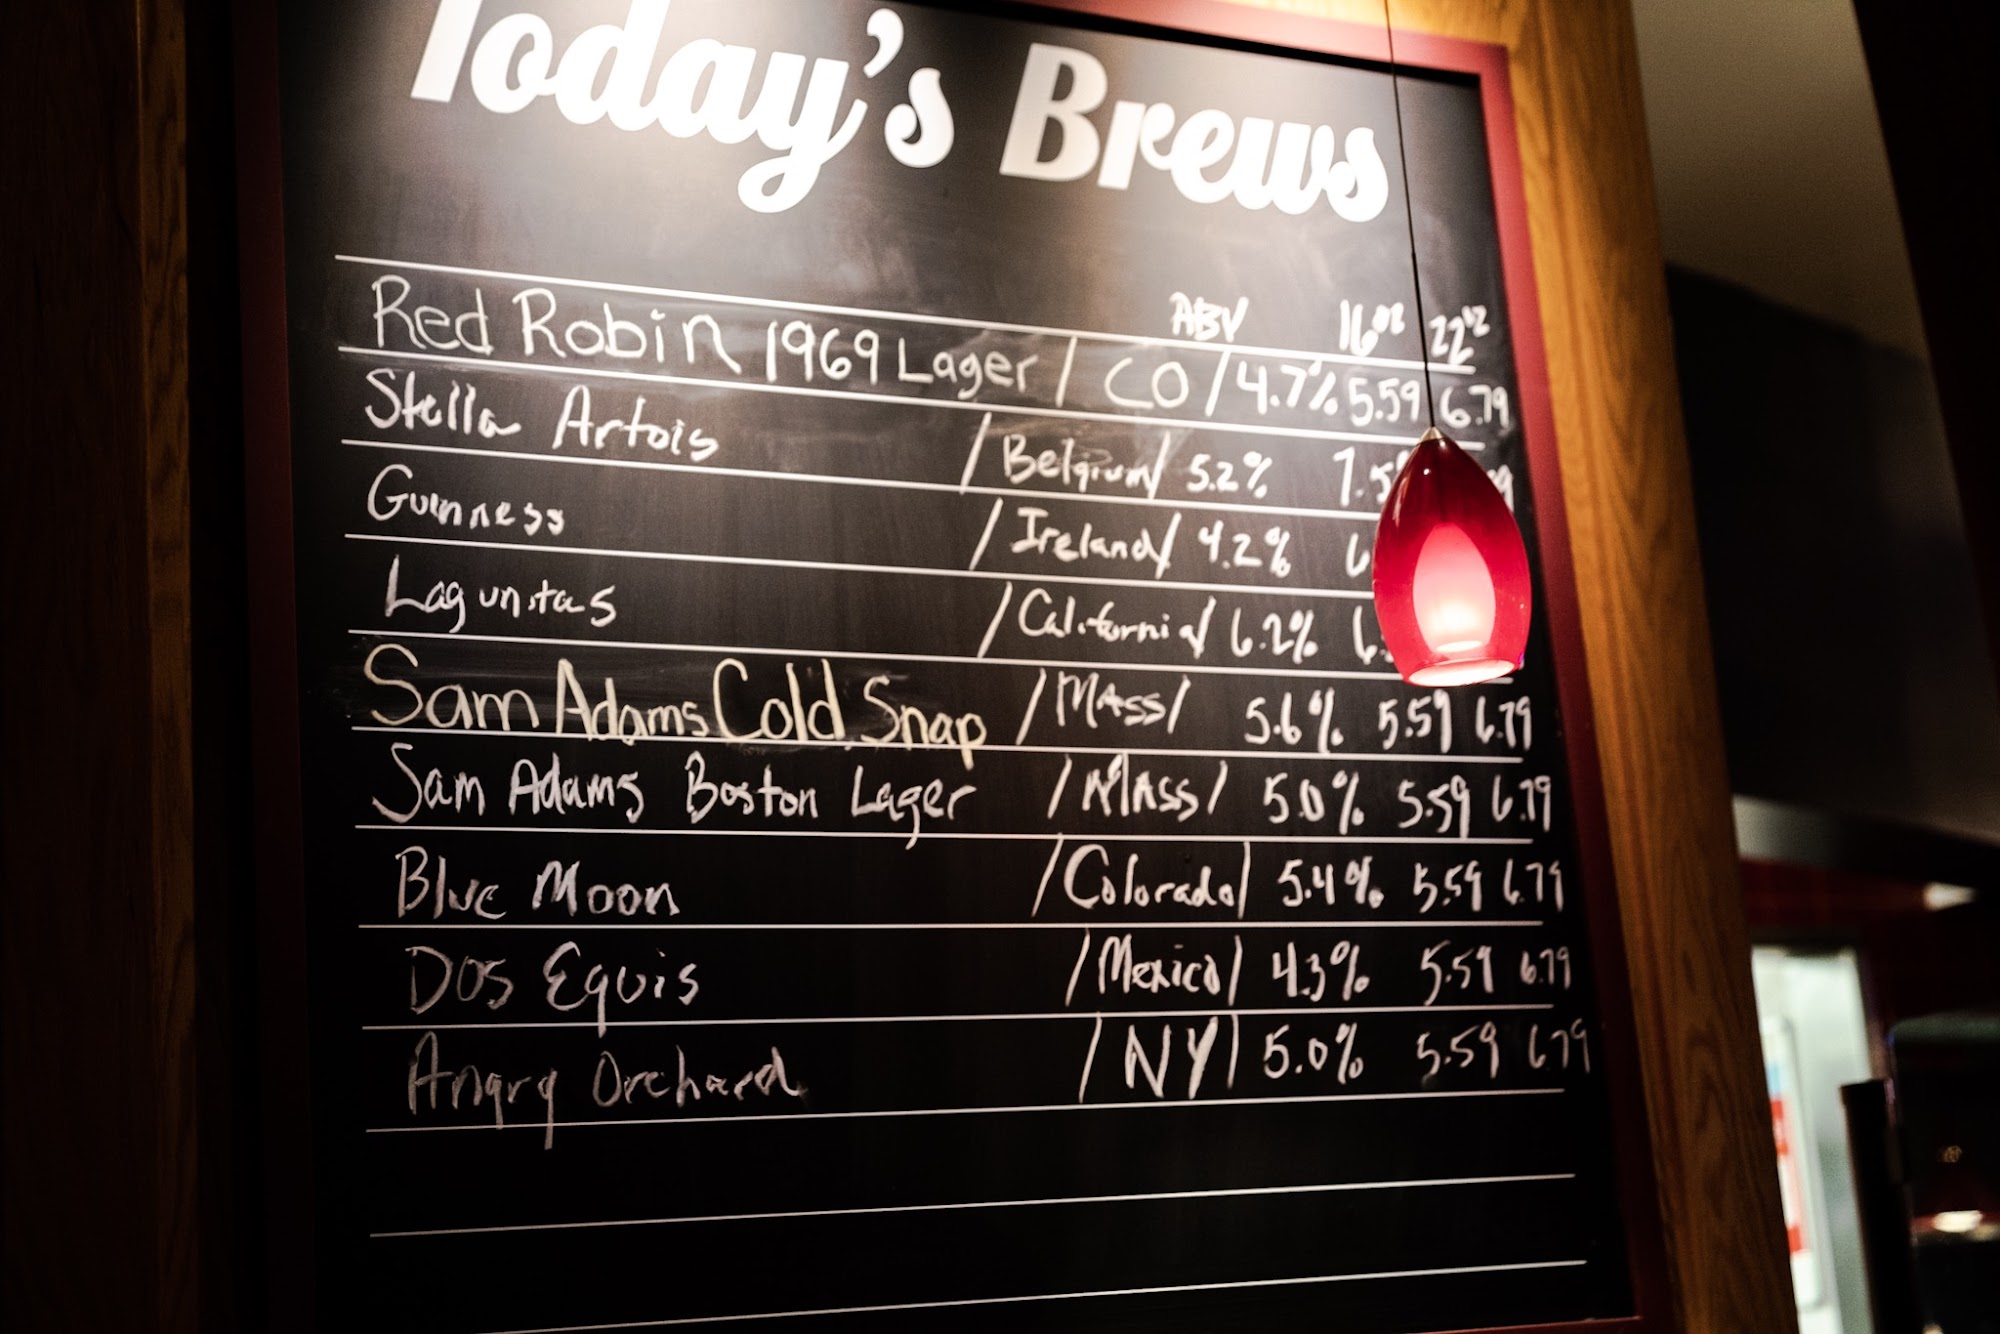 Today's Brews
ABV 16oz 22oz
Red Robin 1969 Lager / CO / 4.7% 5.59 6.79
Stella Artois / Belgium / 5.2%
Guinness / Ireland / 4.2%
Lagunitas / California / 6.2%
Sam Adams Cold Snap / MASS / 5.6% 5.59 6.79
Sam Adams Boston Lager / MASS / 5.0% 5.59 6.79
Blue Moon / Colorado / 5.4% 5.59 6.79
Dos Equis / Mexico / 4.3% 5.59 6.79
Angry Orchard / NY / 5.0% 5.59 6.79